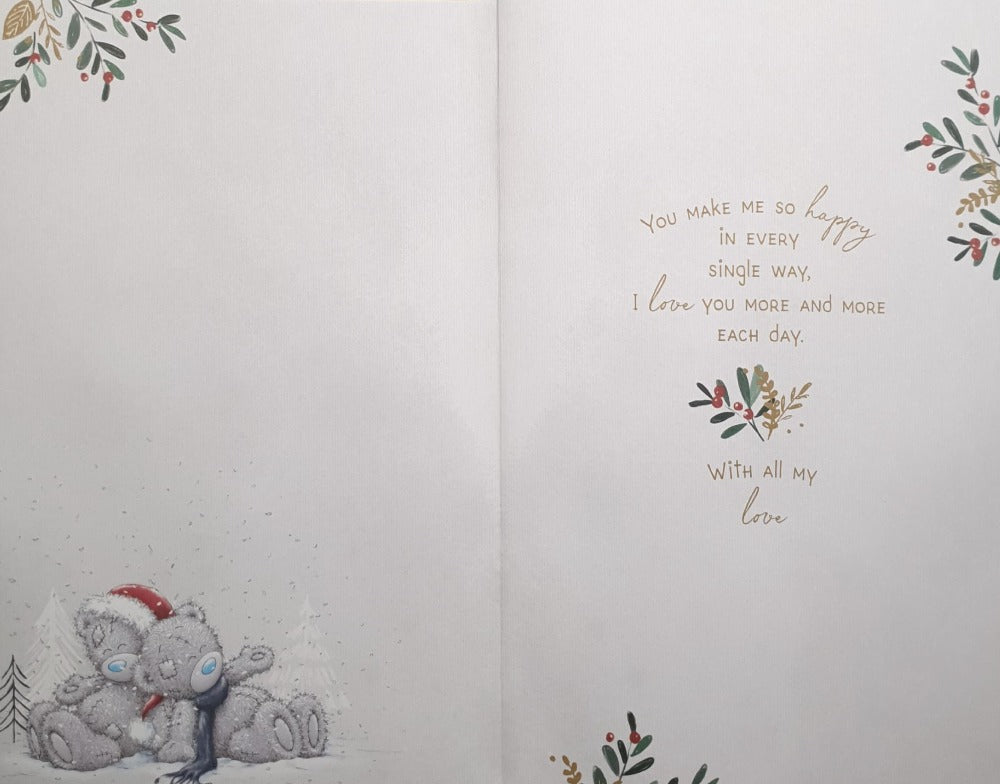 You make me so happy
in every
single way,
I love you more and more
each day.
With all my
love